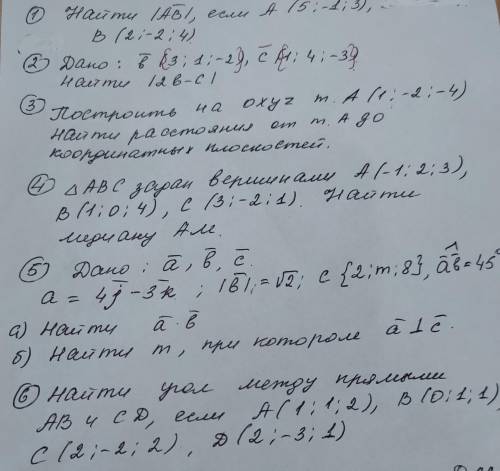 ① Найти |A̅B̅|, если A (5; -1; 3),
B (2; -2; 4)
② Дано: b̅ {3; 1; -2}, c̅ {1; 4; -3}
Найти |2b - c|
③ Построить на oxyz т. A (1; -2; -4)
Найти расстояния от т. A до
координатных плоскостей.
④ △ABC задан вершинами A(-1; 2; 3),
B (1; 0; 4), C (3; -2; 1). Найти
медиану Aм.
⑤ Дано: a̅, b̅, c̅.
a = 4j̅ - 3k̅ ; |b̅| = √2; c {2; m; 8}, a̅b̅ = 45°
а) Найти a̅ · b̅
б) Найти m, при котором a̅ ⊥ c̅.
⑥ Найти угол между прямыми
AB и CD, если A(1; 1; 2), B(0; 1; 1)
C (2; -2; 2), D(2; -3; 1)